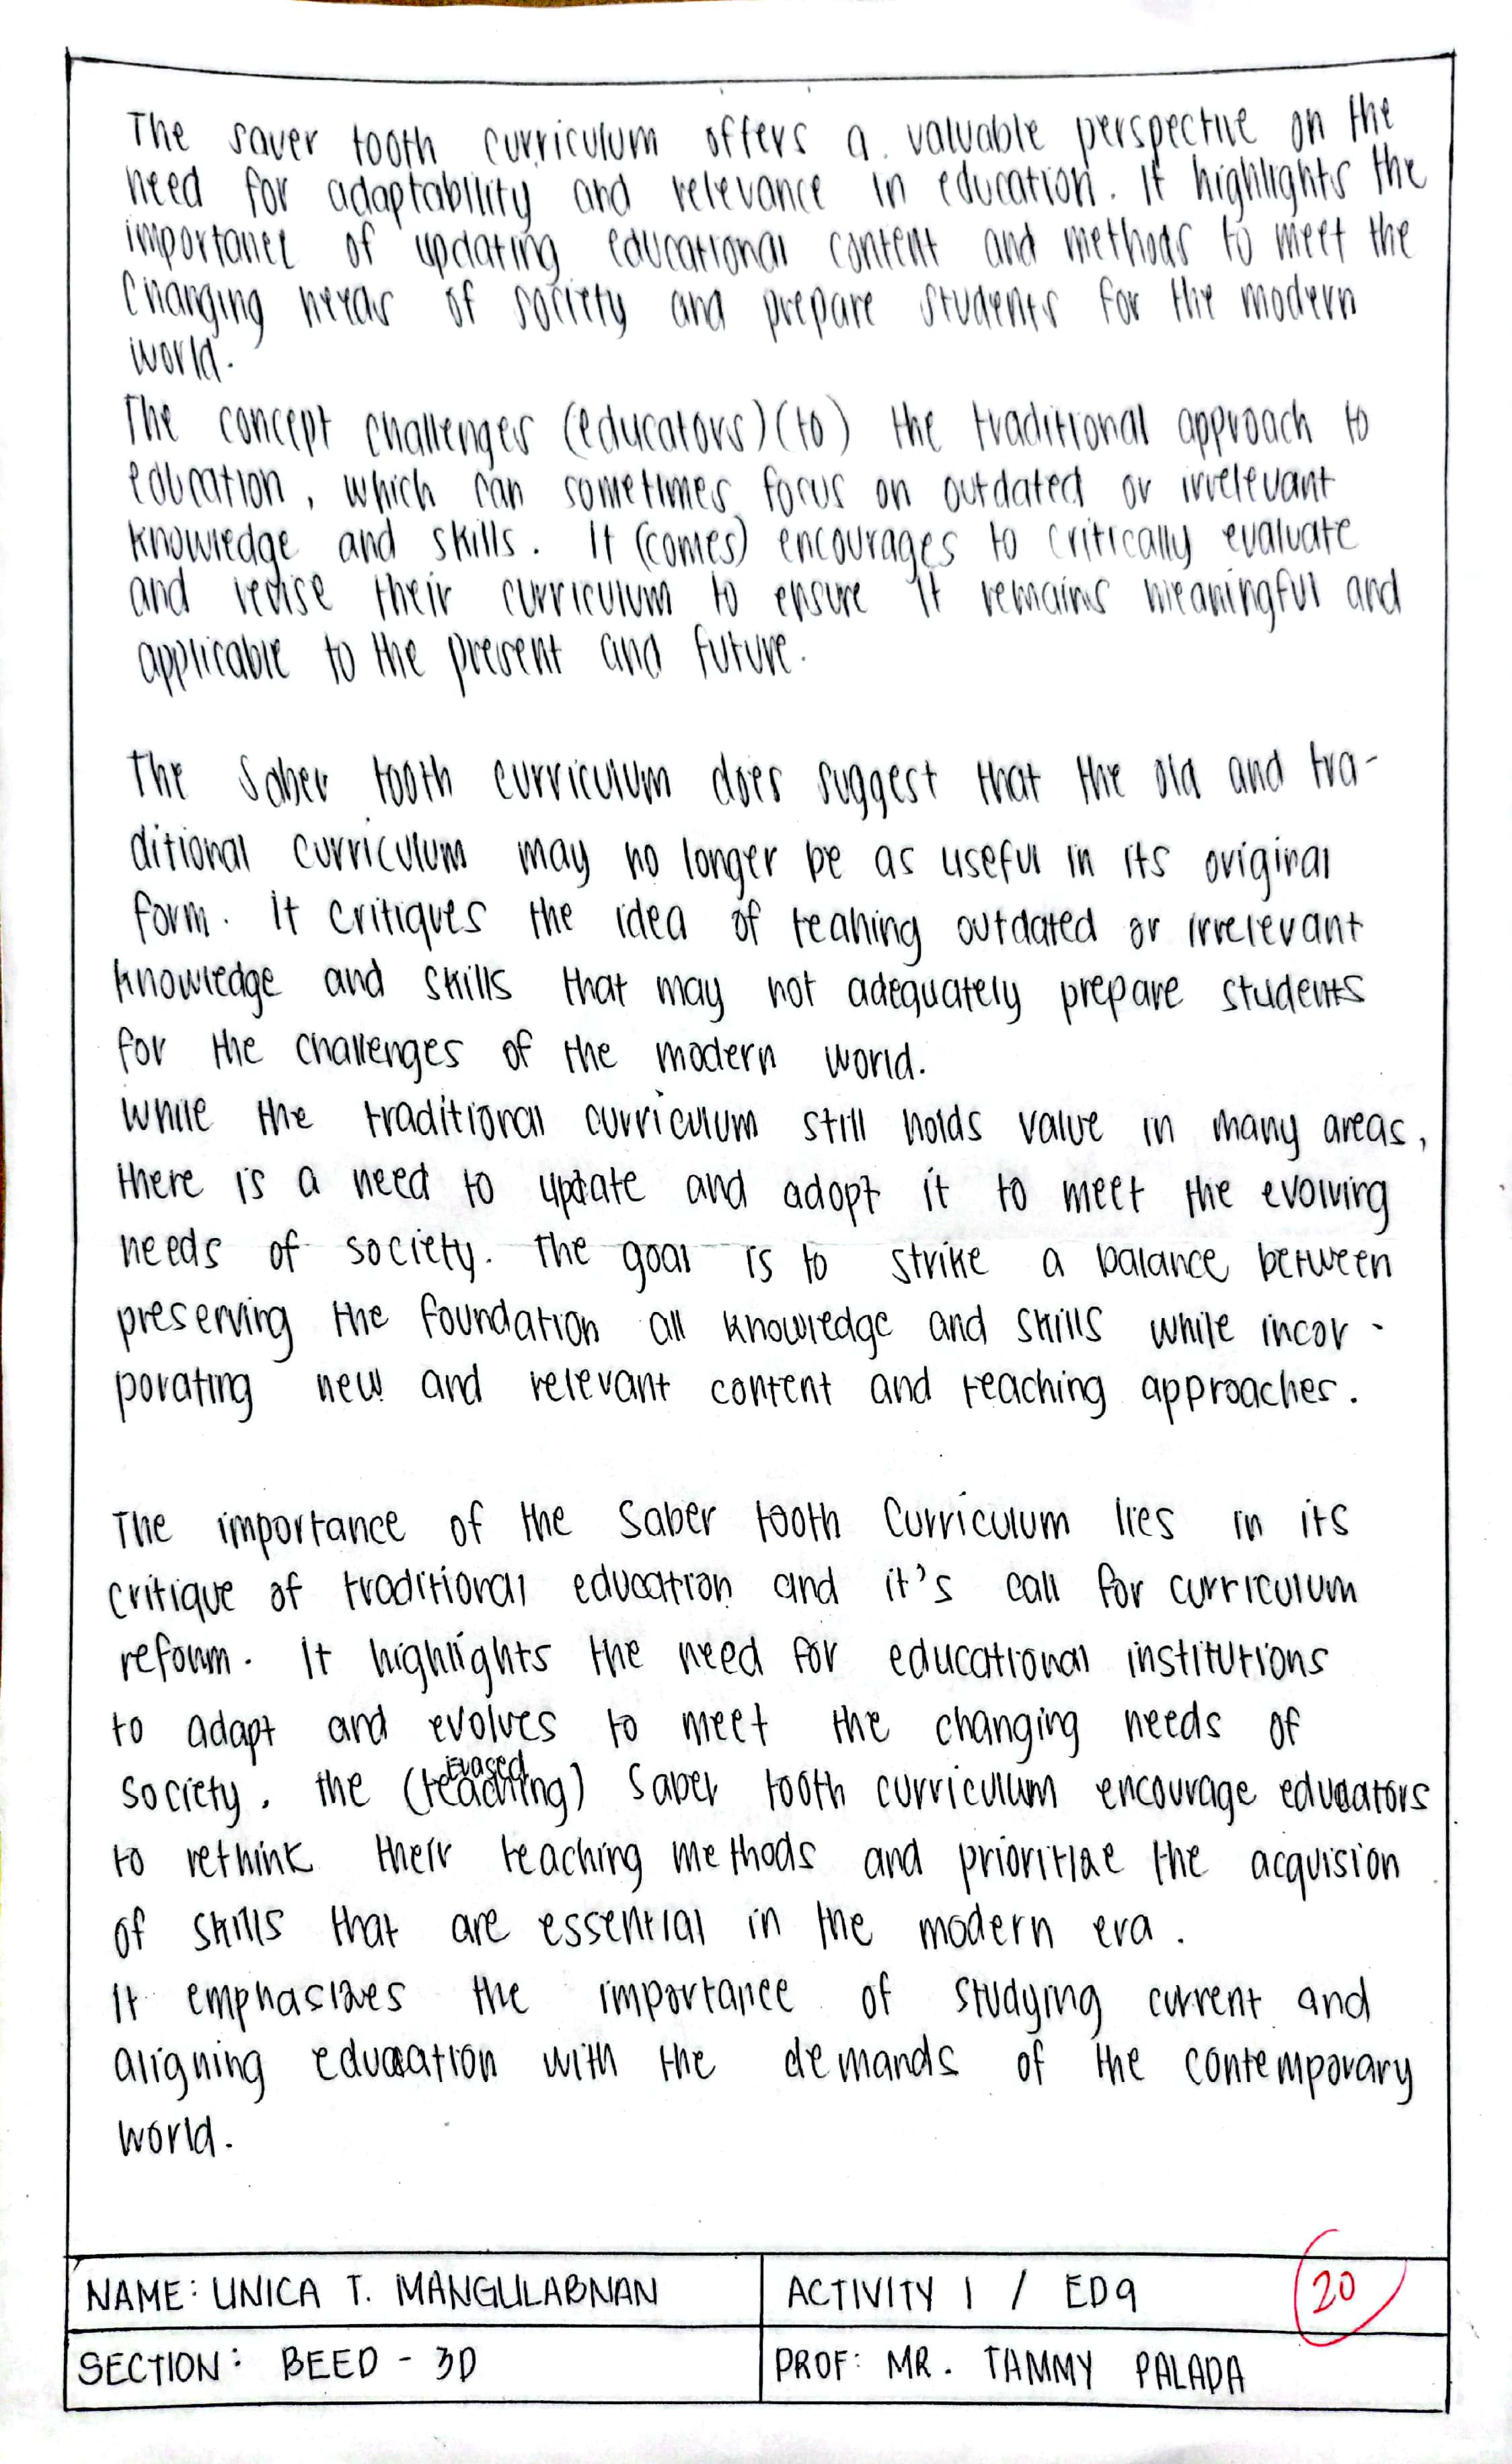 The saver tooth curriculum offers a valuable perspective on the
need for adaptability and relevance in education. It highlights the
importance of updating educational content and methods to meet the
changing needs of society and prepare students for the modern
world.
The concept challenges (educators) (to) the traditional approach to
education, which can sometimes focus on outdated or irrelevant
knowledge and skills. It (comes) encourages to critically evaluate
and revise their curriculum to ensure it remains meaningful and
applicable to the present and future.
The Saber tooth curriculum does suggest that the old and tra-
ditional curriculum may no longer be as useful in its original
form. It critiques the idea of teahing outdated or irrelevant
knowledge and skills that may not adequately prepare students
for the challenges of the modern world.
While the traditional curriculum still holds value in many areas,
there is a need to update and adopt it to meet the evolving
needs of society. The goal is to strike a balance between
preserving the foundation all knowledge and skills while incor-
porating new and relevant content and teaching approaches.
The importance of the Saber tooth Curriculum lies in its
critique of traditional education and it's call for curriculum
reform. It highlights the need for educational institutions
to adapt and evolves to meet the changing needs of
Erased
society. the (teaching) Saber tooth curriculum encourage educators
to rethink their teaching methods and prioritize the acquision
of skills that are essential in the modern era.
It emphasizes the importance of studying current and
aligning education with the demands of the contemporary
world.
NAME: UNICA T. MANGULABNAN
ACTIVITY 1 / ED9
20
SECTION: BEED - 3D
PROF: MR. TAMMY PALADA